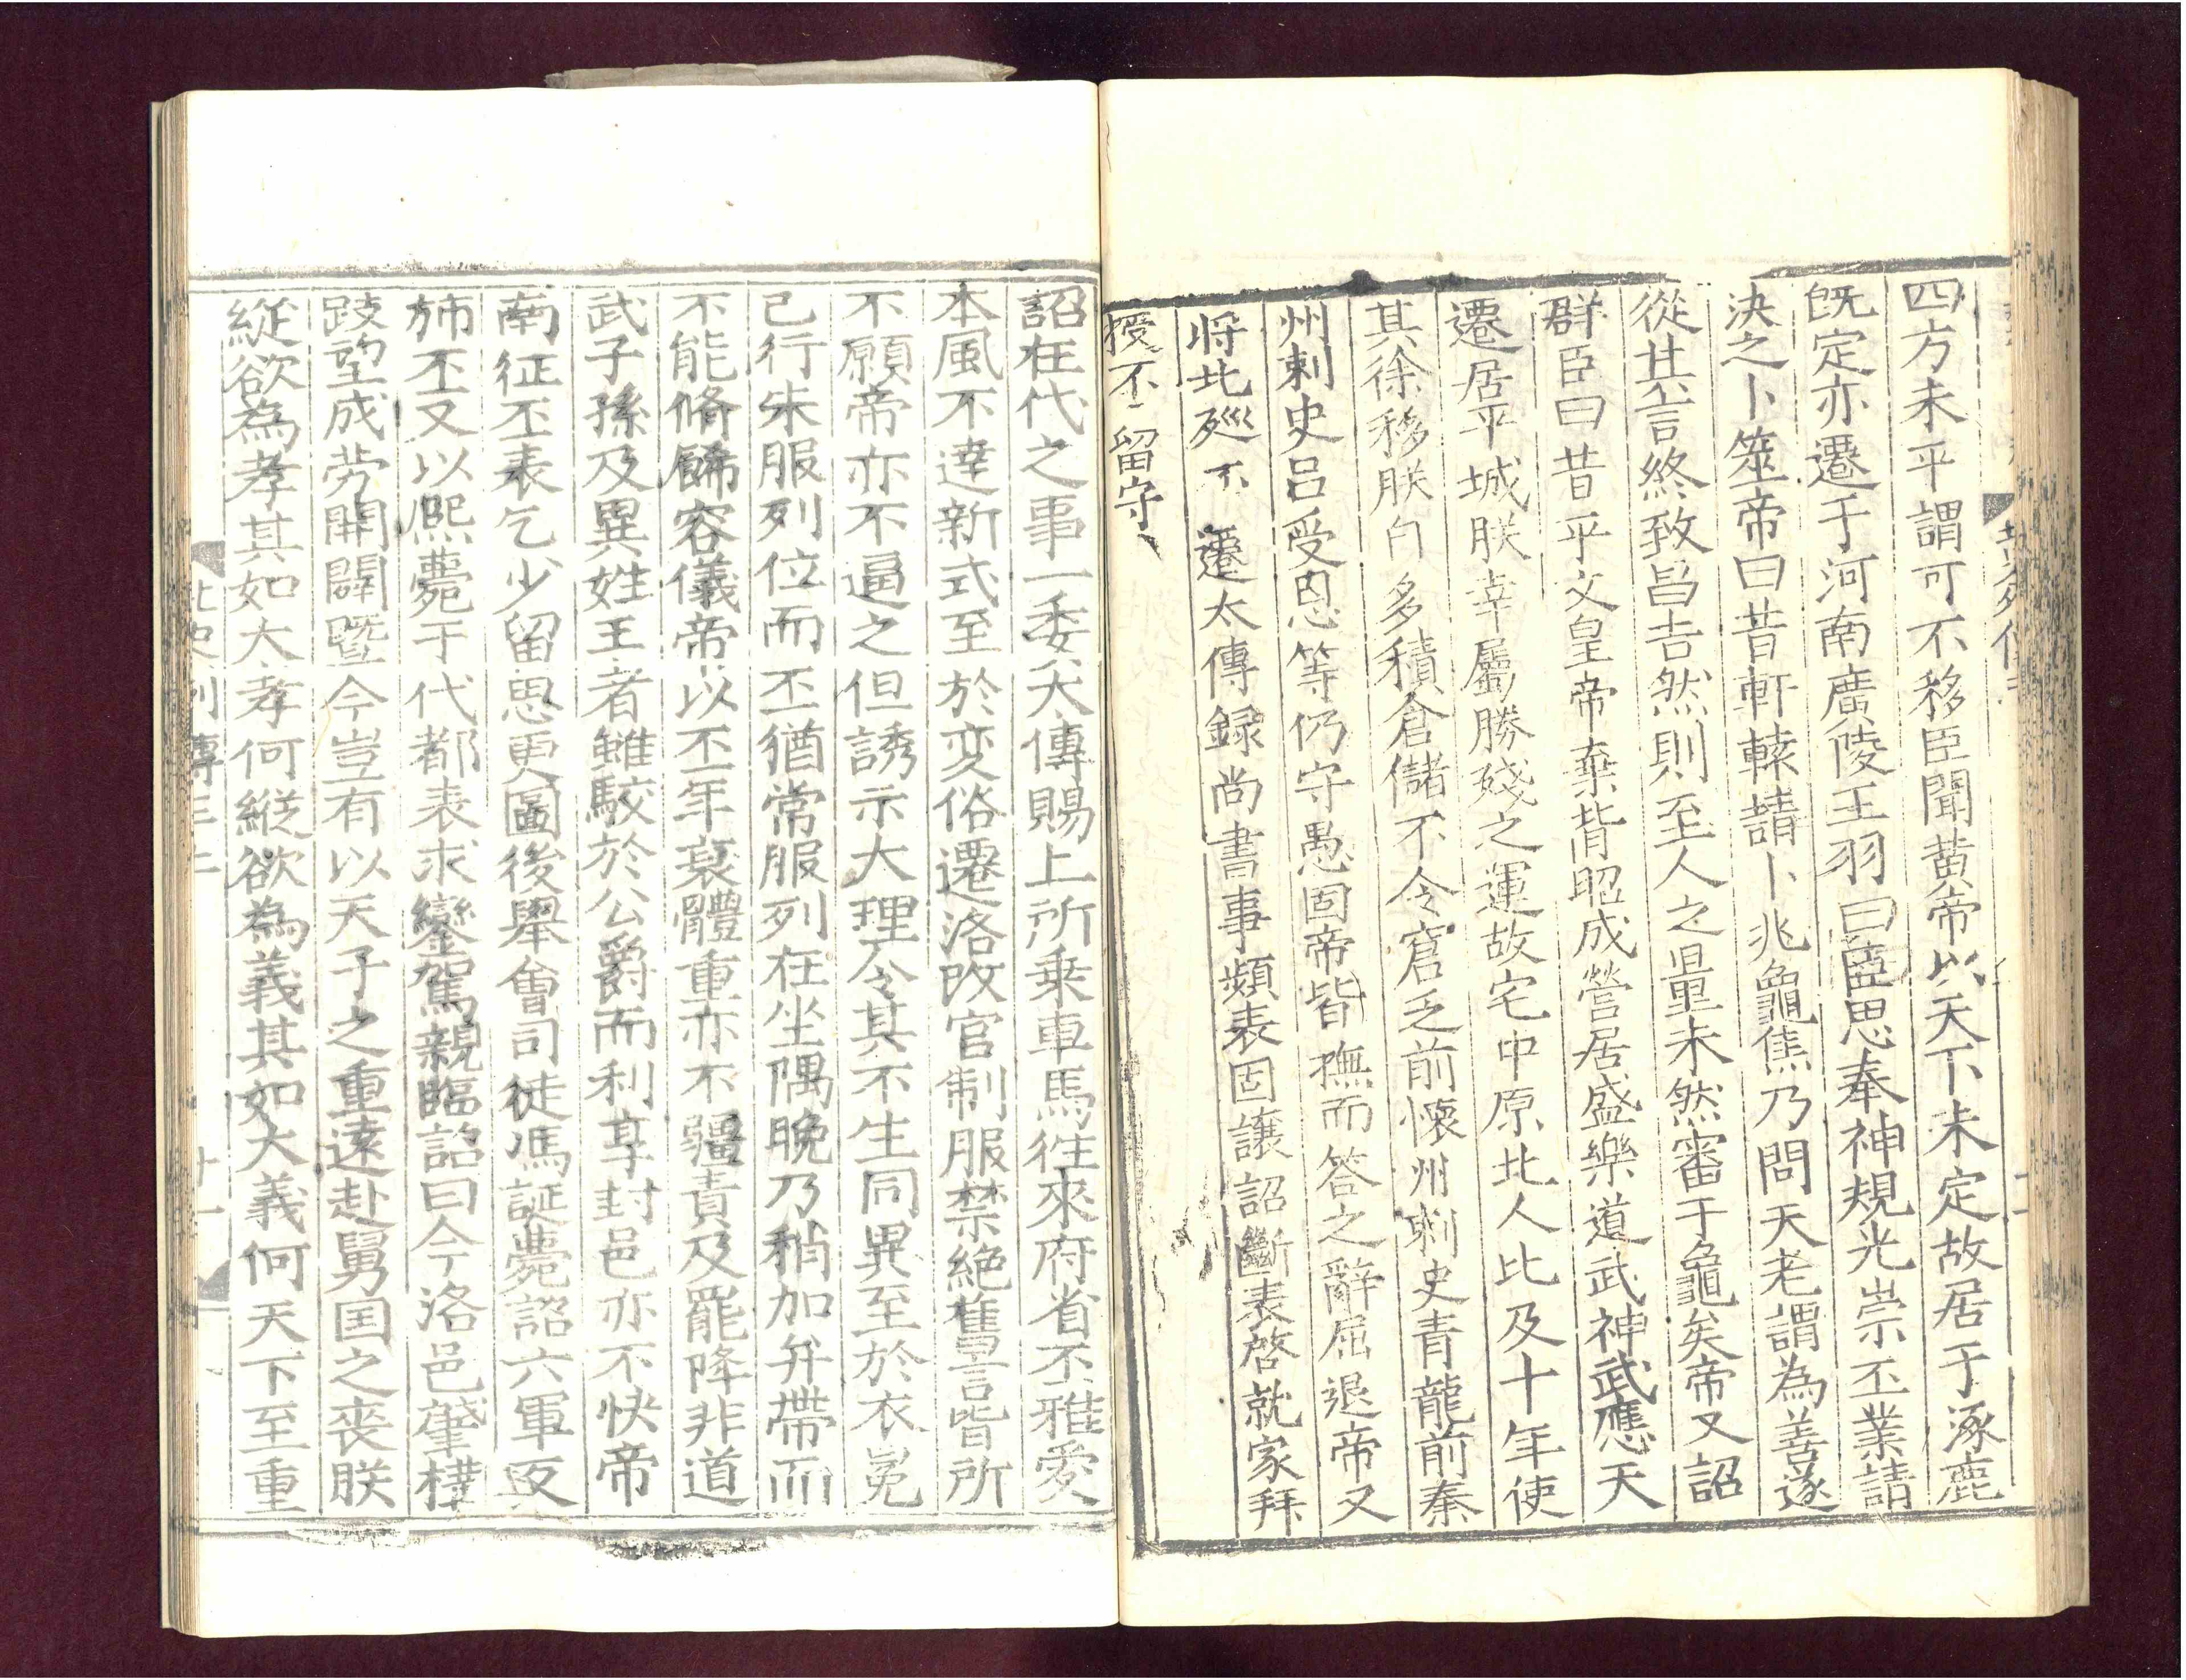 四方未平謂可不移臣聞黃帝以天下未定故居于涿鹿
旣定亦遷于河南廣陵王羽曰臣思奉神規光崇丕業請
決之卜筮帝曰昔軒轅請卜兆龜焦乃問天老謂為善遂
從其言終致昌吉然則至人之量未然審于龜矣帝又詔
群臣曰昔平文皇帝棄背昭成營居盛樂道武神武應天
遷居平城朕幸屬勝殘之運故宅中原北人比及十年使
其徐移朕自多積倉儲不令窘乏前懷州刺史青龍前秦
州剌史呂受恩等仍守愚固帝皆撫而答之辭屈退帝又
將北廵丕遷太傅録尚書事頻表固讓詔斷表啓就家拜
授丕留守
詔在代之事一委太傅賜上所乗車馬徃來府省丕雅愛
本風不達新式至於变俗遷洛改官制服禁絶舊言皆所
不願帝亦不逼之但誘示大理令其不生同異至於衣冕
已行朱服列位而丕猶常服列在坐隅晚乃稍加弁帶而
不能脩飾容儀帝以丕年衰體重亦不彊責及罷降非道
武子孫及異姓王者雖較於公爵而利享封邑亦不快帝
南征丕表乞少留思更圖後舉會司徒馮誕薨詔六軍反
斾丕又以熈薨于代都表求鑾駕親臨詔曰今洛邑肇構
跂望成劳開闢暨今豈有以天子之重遠赴舅国之喪朕
縱欲為孝其如大孝何縱欲為義其如大義何天下至重
北史列傳三 十一